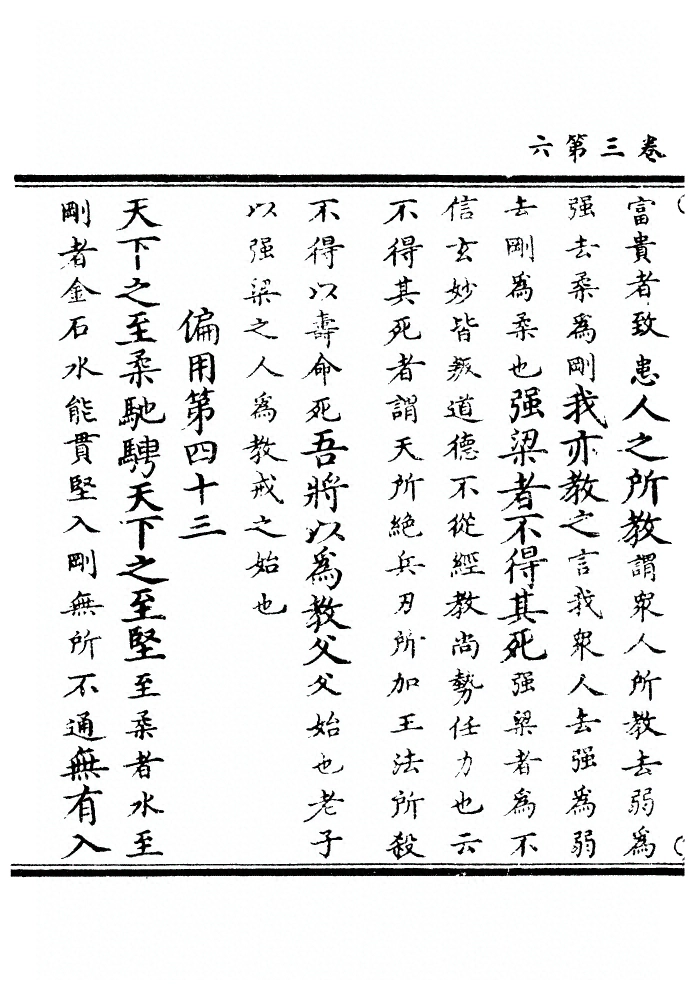 卷三第六
富貴者致患人之所教謂衆人所教去弱爲
强去柔爲剛我亦教之言我衆人去强爲弱
去剛爲柔也强梁者不得其死强梁者爲不
信玄妙皆叛道德不從經教尚勢任力也云
不得其死者謂天所絶兵刃所加王法所殺
不得以壽命死吾將以爲教父父始也老子
以强梁之人爲教戒之始也
偏用第四十三
天下之至柔馳騁天下之至堅至柔者水至
剛者金石水能貫堅入剛無所不通無有入